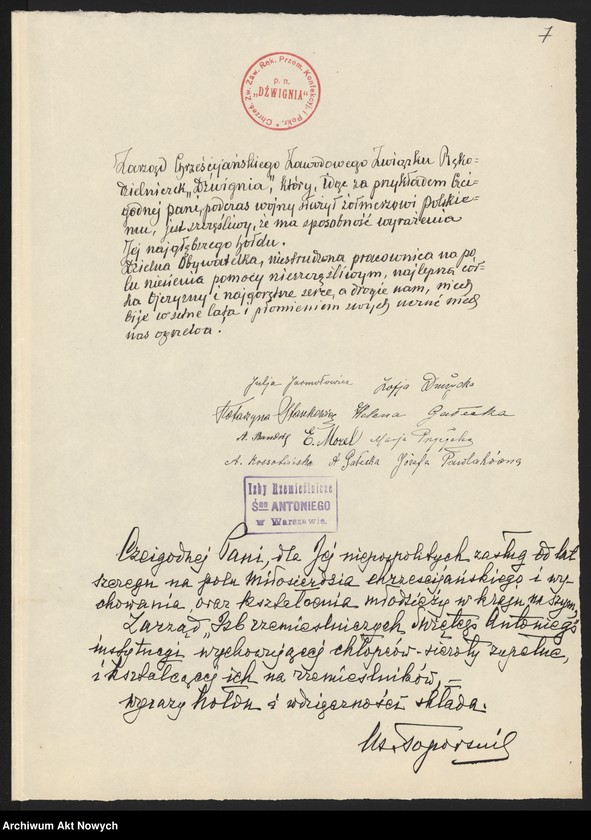 7
Chrześ. Zw. Zaw. Rek. Przem. Konfekcyj. i Pokr.
p. n.
„DŹWIGNIA"
Zarząd Chrześcijańskiego Zawodowego Związku Ręko-
dzielniczek „Dźwignia", który, idąc za przykładem Czci-
godnej Pani, podczas wojny służył żołnierzowi Polskie-
mu, jest szczęśliwy, że ma sposobność wyrażenia
Jej najgłębszego hołdu.
Dzielna Obywatelka, niestrudzona pracownica na po-
lu niesienia pomocy nieszczęśliwym, najlepsza cór-
ka Ojczyzny i najgorętsze serce, a drogie nam, niech
bije w setne lata i płomieniem swych uczuć niech
nas ogrzewa.
Julja Jarmołowicz Zofja
Katarzyna Stankiewicz Helena Gałecka
E. Morel Marja
A. Kossobudzka A Gałecka Józefa Pawlakówna
Izby Rzemieślnicze
Śgo ANTONIEGO
w Warszawie.
Czcigodnej Pani, dla Jej niepospolitych zasług od lat
szeregu na polu miłosierdzia chrześcijańskiego i wy-
chowania, oraz kształcenia młodzieży w kraju naszym,
Zarząd „Izb rzemieślniczych Świętego Antoniego"
instytucji wychowującej chłopców-sieroty zupełne,
i kształcącej ich na rzemieślników, —
wyrazy hołdu i wdzięczności składa.
Archiwum Akt Nowych